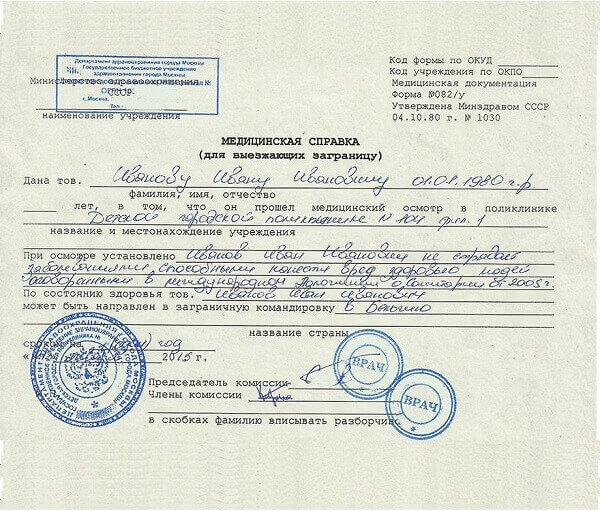 Департамент здравоохранения города Москвы
Государственное бюджетное учреждение
здравоохранения города Москвы
г. Москва,
Тел.:
Министерство здравоохранения
СССР
наименование учреждения
Код формы по ОКУД
Код учреждения по ОКПО
Медицинская документация
Форма №082/у
Утверждена Минздравом СССР
04.10.80 г. № 1030
МЕДИЦИНСКАЯ СПРАВКА
(для выезжающих заграницу)
Дана тов. Иванову Ивану Ивановичу 01.01.1980 г.р.
фамилия, имя, отчество
лет, в том, что он прошел медицинский осмотр в поликлинике
Детской городской поликлинике N 104 фил. 1
название и местонахождение учреждения
При осмотре установлено Иванов Иван Иванович не страдает
заболеваниями способными нанести вред здоровью людей
оговоренными в международном о санитарии от 2005 г.
По состоянию здоровья тов. Иванов Иван Иванович
может быть направлен в заграничную командировку в Бельгию
название страны
сроком на 1 год
2015 г.
Председатель комиссии
Члены комиссии
в скобках фамилию вписывать разборчиво
ВРАЧ
ВРАЧ